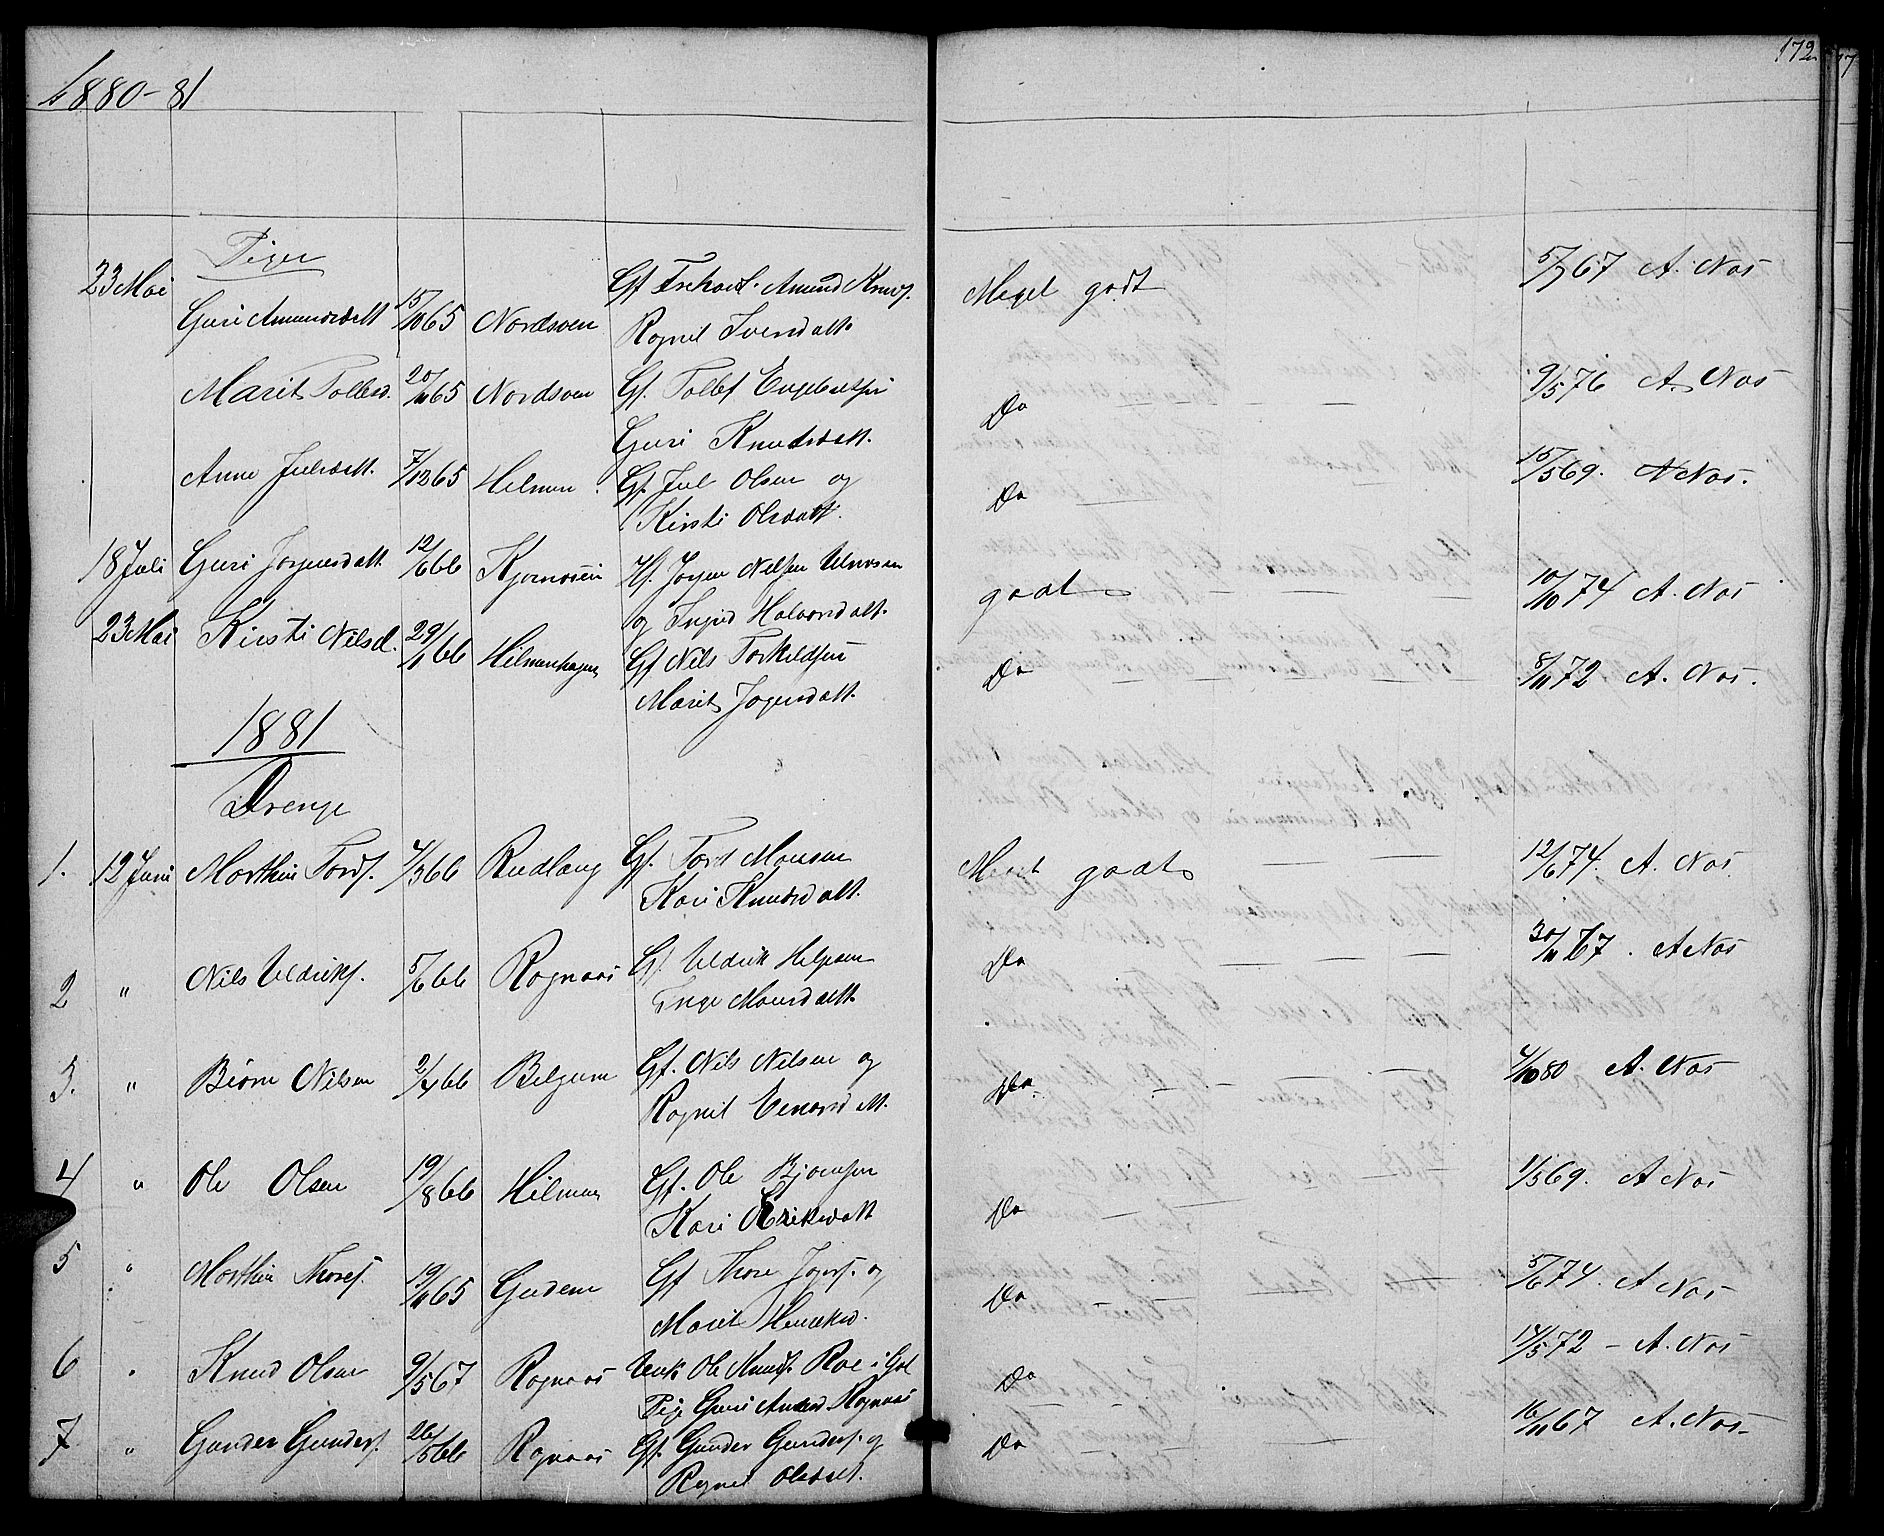 1880-81
172
Piger
23 Mai Guri Amundsdatt 15/10 65 Nordsveen Gf. Amund Knuds. Meget godt 5/7 67 A. Nos
Rognil Svensdatt
Marit Tollesd. 20/10 65 Nordsveen Gf. Tollef Engebretsen Do 9/5 76 A. Nos
Guri Knudsdatt.
Anne Juelsdatt. 7/12 65 Hilmen Gf. Juel Olsen og Do 15/5 69. A Nos.
Kirsti Olsdatt.
18 Juli Guri Jorgensdatt. 12/6 66 Hf. Jorgen Nelsen godt 10/10 74 A. Nos
og Ingrid Halvorsdatt.
23 Mai Kirsti Nilsd. 29/1 66 Hilmenhagen Gf Nils Torkildsen Do 8/11 72 A. Nos.
Marit Jogensdatt.
1881
Drenge
1. 12 Juni Morthin Tords. 4/3 66 Rudlang Gf. Tord Monsen Meget godt 12/6 74. A. Nos
Kari Knudsdatt.
2 " Nils Uldriks. 5/6 66 Rognaas Gf. Uldrik Helgesen Do 30/11 67. A Nos
Inge Monsdatt.
3. " Biørn Nilsen 2/4 66 Belgum Gf. Nils Nilsen og Do. 4/10 80 A. Nos
Rognil Evensdatt.
4 " Ole Olsen 19/8 66 Hilmen Gf. Ole Bjørnsen Do 1/5 69. A Nos
Kari Eriksdatt
5 " Morthin Thores. 19/11 65 Gudem Gf Thore Jogens. og Do 5/6 74. A Nos
Marit Henriksd.
6 " Knud Olsen 9/5 67 Rognaas Unk Ole Knuds. Roe i Gol Do 14/5 72 - A. Nos
Pige Guri Amund Rognaas
7 " Gunder Gunders. 26/5 66 Rognaas Gf. Gunder Gunders. og Do 16/11 67 A. Nos.
Rognil Olsdatt.